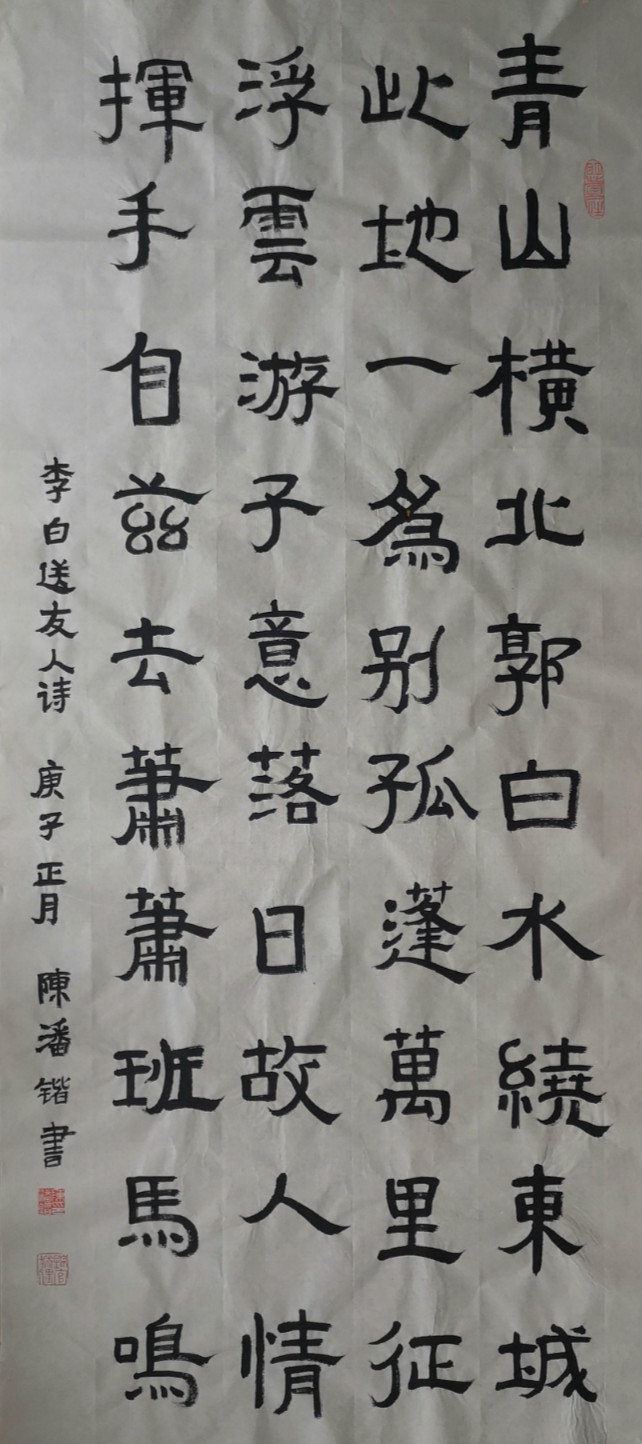 青山橫北郭白水繞東城
此地一為别孤蓬萬里征
浮雲游子意落日故人情
揮手自兹去蕭蕭班馬鳴
李白送友人诗 庚子正月 陳潘锴書